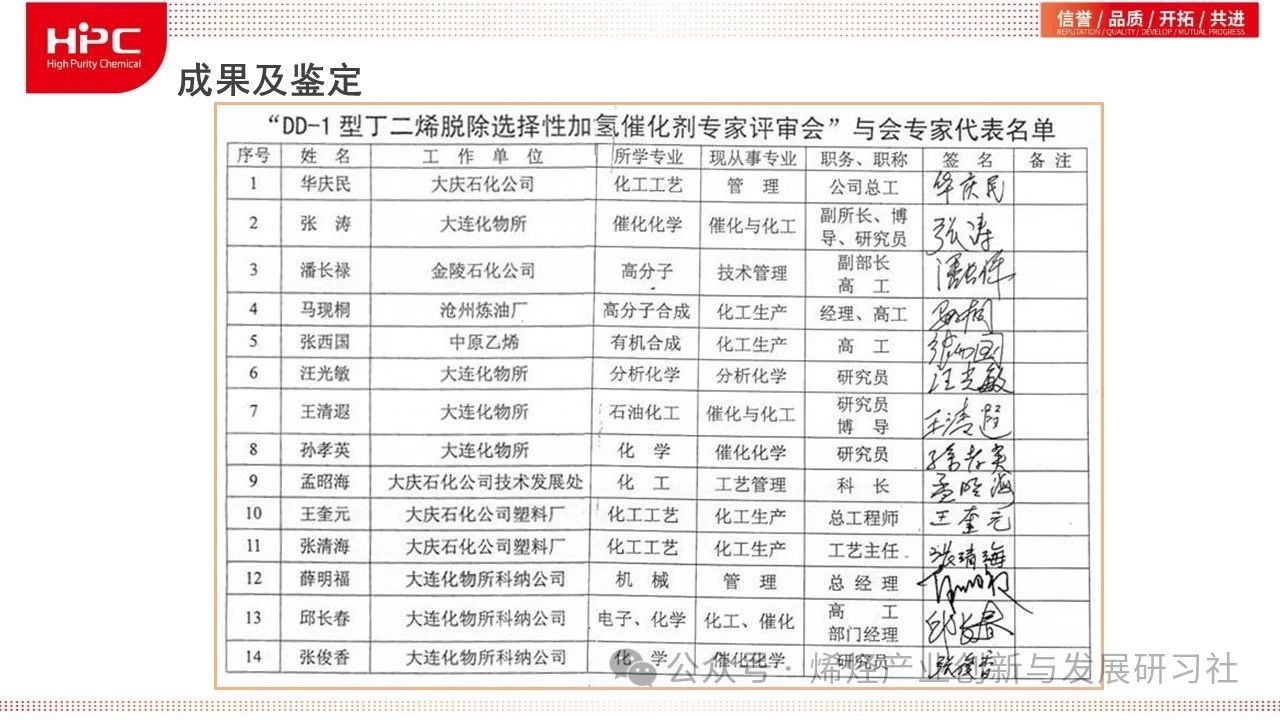 HPC
High Purity Chemical
信誉 / 品质 / 开拓 / 共进
REPUTATION / QUALITY / DEVELOP / MUTUAL PROGRESS
成果及鉴定
“DD-1型丁二烯脱除选择性加氢催化剂专家评审会”与会专家代表名单
序号 姓 名 工 作 单 位 所学专业 现从事专业 职务、职称 签 名 备 注
1 华庆民 大庆石化公司 化工工艺 管 理 公司总工 华庆民
2 张 涛 大连化物所 催化化学 催化与化工 副所长、博导、研究员 张涛
3 潘长禄 金陵石化公司 高分子 技术管理 副部长 高 工
4 马现桐 沧州炼油厂 高分子合成 化工生产 经理、高工
5 张西国 中原乙烯 有机合成 化工生产 高 工 张西国
6 汪光敏 大连化物所 分析化学 分析化学 研究员 汪光敏
7 王清遐 大连化物所 石油化工 催化与化工 研究员 博 导 王清遐
8 孙孝英 大连化物所 化 学 催化化学 研究员 孙孝英
9 孟昭海 大庆石化公司技术发展处 化 工 工艺管理 科 长 孟昭海
10 王奎元 大庆石化公司塑料厂 化工工艺 化工生产 总工程师 王奎元
11 张清海 大庆石化公司塑料厂 化工工艺 化工生产 工艺主任 张清海
12 薛明福 大连化物所科纳公司 机 械 管 理 总 经 理
13 邱长春 大连化物所科纳公司 电子、化学 化工、催化 高 工 部门经理 邱长春
14 张俊香 大连化物所科纳公司 化 学 催化化学 研究员 张俊香
公众号 · 烯烃产业创新与发展研习社